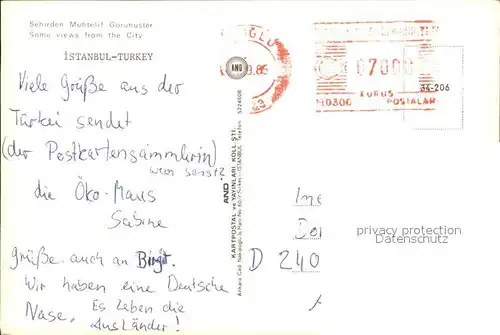 Sehirden Muhtelif Gorunusler
Some views from the City
İSTANBUL-TURKEY
Viele Grüße aus der
Türkei sendet
(der Postkartensammlerin)
wem sonst?
die Öko-Maus
Sabine
Grüße auch an Birgit.
Wir haben eine Deutsche
Nase. Es leben die
Ausländer!
AND
KARTPOSTAL ve YAYINLARI KOLL. ŞTİ.
AND
.9.85
07000
KURUS
POSTALAR
34-206
D 240
privacy protection
Datenschutz